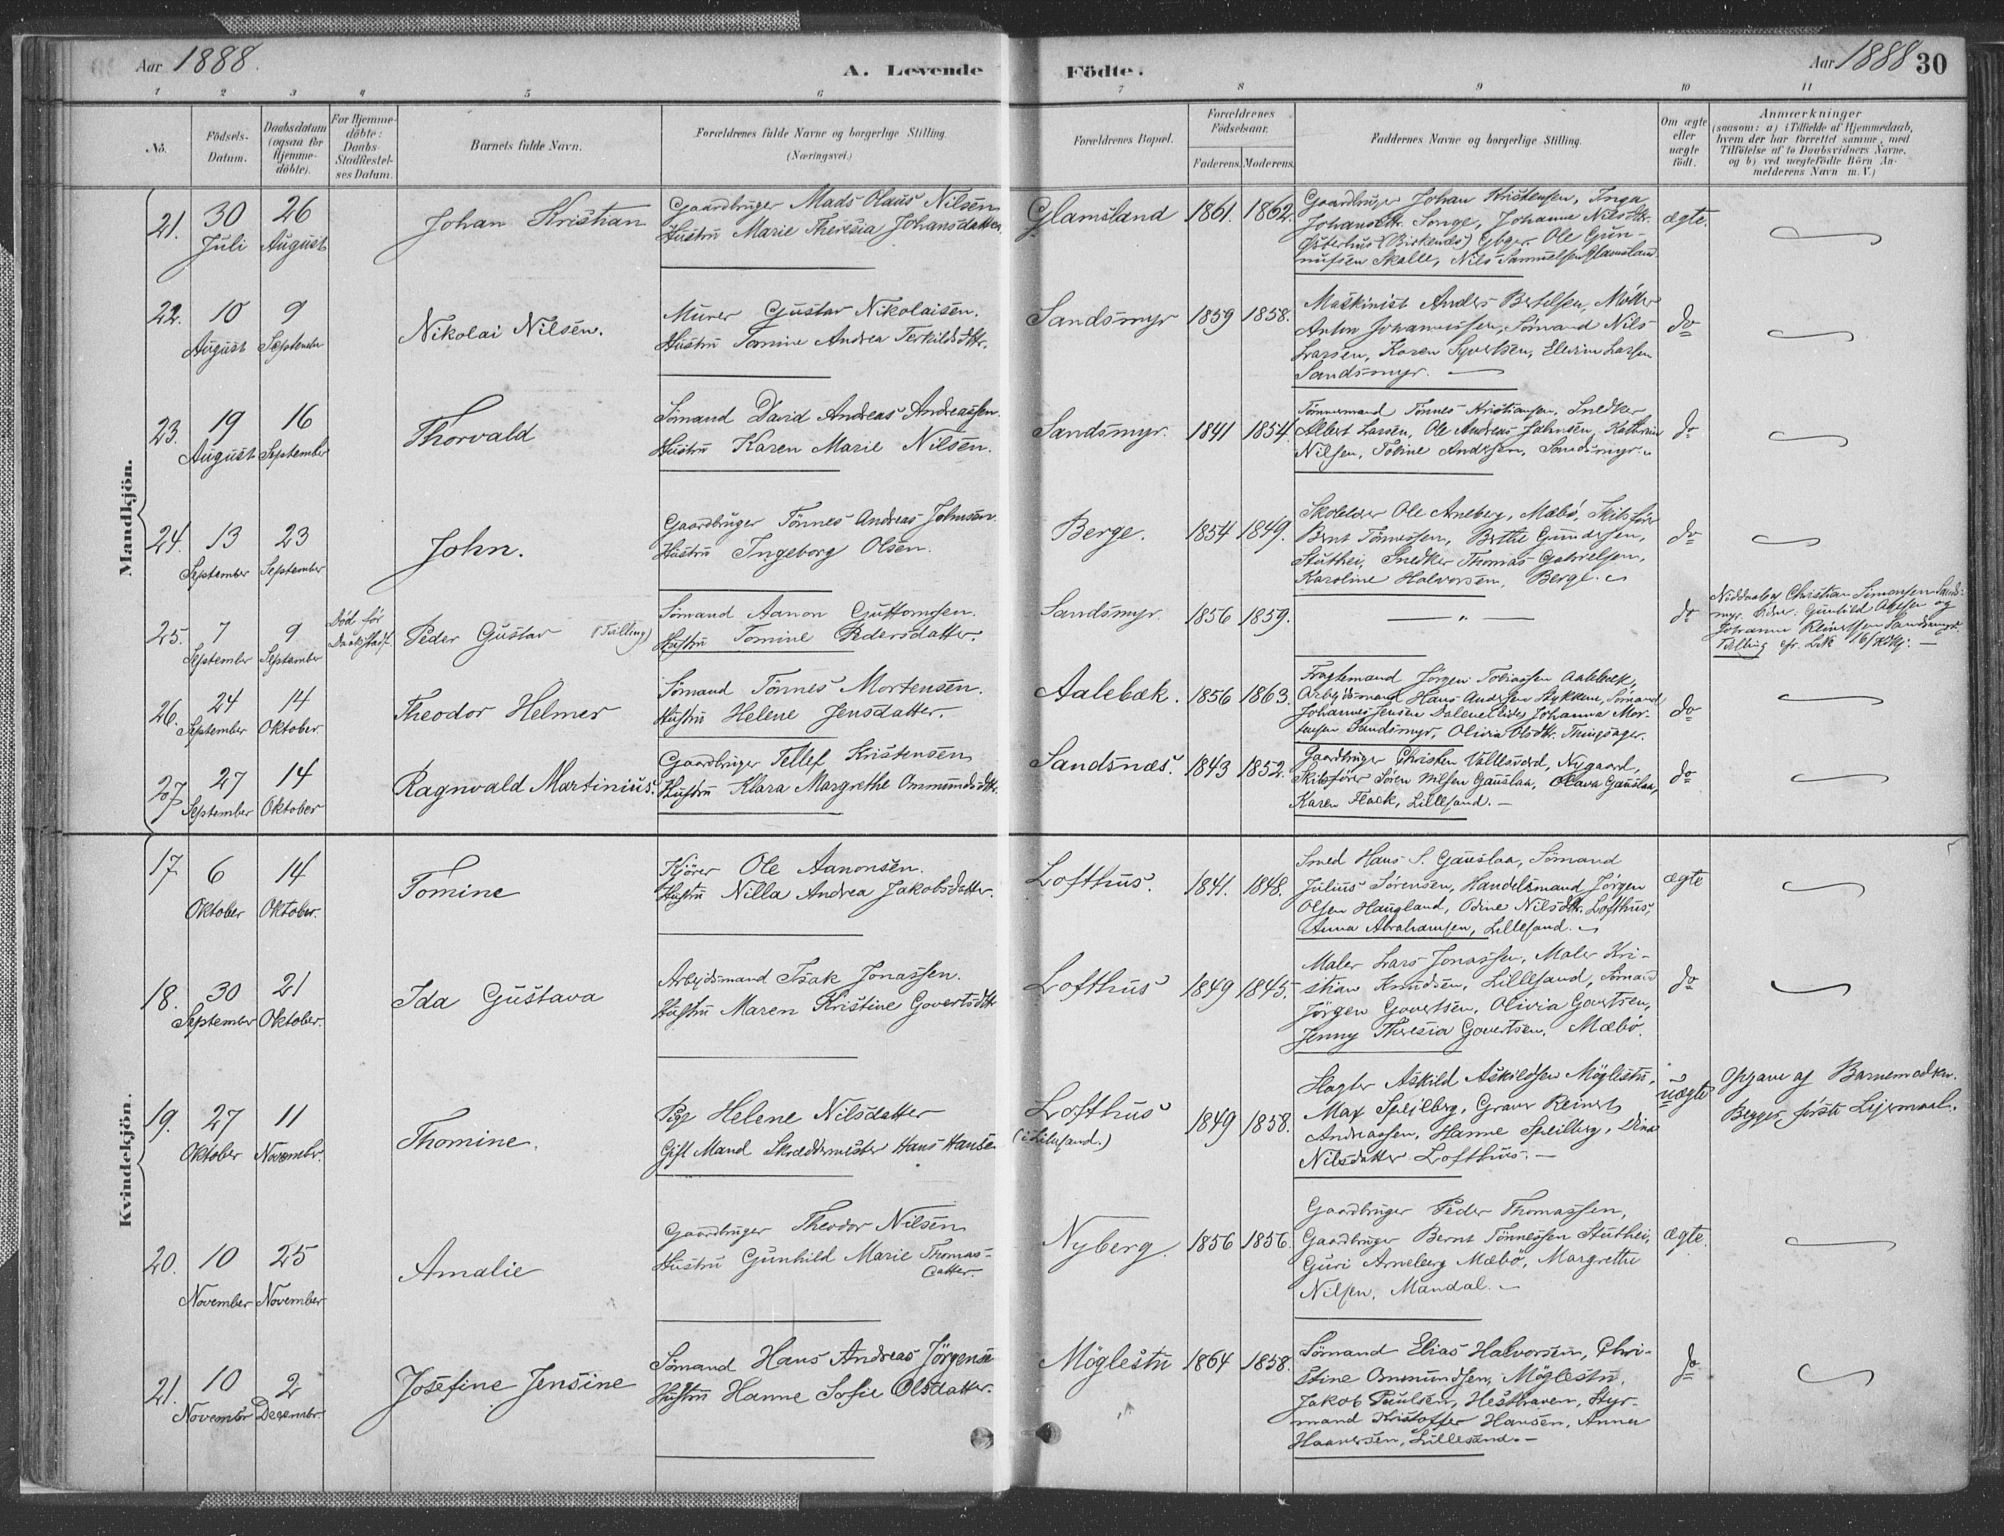 Aar 1888.
A. Levende Födte.
Aar 1888 30
1 2 3 4 5 6 7 8 9 10 11
No.
Födsels-Datum.
Daabsdatum (ogsaa for Hjemme-döbte).
For Hjemme-döbte: Daabs-Stadfæstel-ses Datum.
Barnets fulde Navn.
Forældrenes fulde Navne og borgerlige Stilling.
(Næringsvei.)
Forældrenes Bopæl.
Forældrenes Födselsaar.
Faderens. Moderens.
Faddernes Navne og borgerlige Stilling.
Om ægte eller uægte födt.
Anmærkninger
(saasom: a) i Tilfælde af Hjemmedaab,
hvem der har forrettet samme, med
Tilföielse af to Daabsvidners Navne,
og b) ved uægtefödte Börn An-
melderens Navn m. V.)
Mandkjön.
21. 30 Juli 26 August Johan Kristian
Gaardbruger Mads Olaus Nilsen
Hustru Marie Theresia Johansdatter.
Glamsland 1861. 1862.
Gaardbruger Johan Kristensen, Inga
Johansdtr. Songe, Johanne Nilsdtr.
Østerhus (Birkenæs) Gbger. Ole Gun-
nufsen Skalle, Nils Samuelsen Glamsland
ægte.
22. 10 August 9 September Nikolai Nilsen.
Murer Gustav Nikolaisen.
Hustru Tomine Andrea Terkildsdtr.
Sandsmyr 1859 1858.
Maskinist Anders Bertelsen, Möller
Anton Johannessen, Sömand Nils
Larsen, Karen Syvertsen, Larsen
Sandsmyr.
do
23. 19 August 16 September Thorvald
Sömand David Andreas Andreassen.
Hustru Karen Marie Nilsen.
Sandsmyr. 1841 1854
Tömmermand Tönnes Kristiansen, Snedker
Albert Larsen, Ole Andreas Jahnsen, Kathrine
Nilsen, Tobine Andersen, Sandsmyr.
do
24. 13 September 23 September John.
Gaardbruger Tönnes Andreas Johnsen.
Hustru Ingeborg Olsen.
Berge. 1854 1849.
Skolelærer Ole Arneberg, Mæbö, Skibsförer
Bernt Tönnessen, Berthe Gundersen,
Stuthei, Snedker Thomas Gabrielsen,
Karoline Halvorsen, Berge.
do
25. 7 September 9 September Död før Daabsstadf. Peder Gustav (Tvilling)
Sömand Aanon Guttormsen.
Hustru Tomine Pedersdatter.
Sandsmyr 1856 1859.
— „ —
do
Christian Simonsen Sands-
myr. Vidner: Gunhild Olsen og
Johanne Reinertsen Sandsmyr.
Tvilling cfr. 16/
26. 24 September 14 Oktober Theodor Helmer
Sömand Tönnes Mortensen.
Hustru Helene Jensdatter.
Aalebæk. 1856 1863.
Fragtemand Jörgen Tobiassen Aalebæk,
Arbejdsmand Hans Andersen Lykken, Sömand
Johannes Jensen Johanna Mor-
tensen Sandsmyr, Olivia Olsdtr. Tingsager.
do
27. 27 September 14 Oktober Ragnvald Martinius.
Gaardbruger Tellef Kristensen
Hustru Klara Margrethe Ommundsdtr.
Sandsnæs. 1843 1852.
Gaardbruger Christen Vallesverd, Nygaard,
Skibsförer Sören Nilsen Gauslaa, Olava Gauslaa,
Karen Flaek, Lillesand.
do
Kvindekjön.
17. 6 Oktober 14 Oktober. Tomine
Kjörer Ole Aanonsen.
Hustru Nilla Andrea Jakobsdatter.
Lofthus. 1841. 1848.
Smed Hans S. Gauslaa, Sömand
Julius Sörensen, Handelsmand Jörgen
Olsen Haugland, Odine Nilsdtr. Lofthus,
Anna Abrahamsen, Lillesand.
ægte
18. 30 September 21 Oktober. Ida Gustava
Arbejdsmand Isak Jonassen.
Hustru Maren Kristine Govertsdtr
Lofthus 1849 1845.
Maler Lars Jonassen, Maler Kri-
stian Knudsen, Lillesand, Sömand
Jörgen Govertsen, Olivia Govertsen,
Jenny Theresia Govertsen, Mæbö.
do
19. 27 Oktober 11 Novembr. Thomine.
Pige Helene Nilsdatter
Gift Mand Skræddermester Hans Hansen
Lofthus (i Lillesand.) 1849 1858.
Slagter Askild Askildsen Möglestu,
Max Speilberg, Graver Reinert
Andreassen, Hanne Speilberg, Dina
Nilsdatter Lofthus.
uægte
Opgave af Barnemoderen.
Begges første Lejermaal.
20. 10 November 25 November Amalie
Gaardbruger Theodor Nilsen
Hustru Gunhild Marie Thomas-
datter.
Nyberg. 1856 1856.
Gaardbruger Peder Thomassen,
Gaardbruger Bernt Tönnessen Stuthei,
Guri Arneberg Mæbö, Margrethe
Nilsen, Mandal.
ægte.
21. 10 Novembr 2 Decembr. Josefine Jensine
Sömand Hans Andreas Jörgensen
Hustru Hanne Sofie Olsdatter.
Möglestu 1864 1858.
Sömand Elias Halvorsen, Chri-
stine Ommundsen, Möglestu,
Jakob Paulsen, Hesthaven, Styr-
mand Kristoffer Hansen, Anna
Haaversen, Lillesand.
do